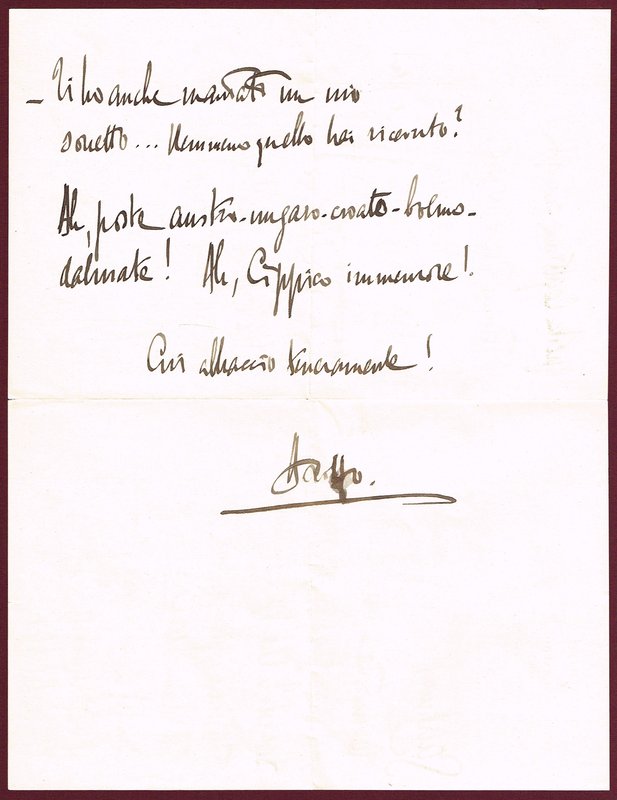 – Ti ho anche mandato un mio
sonetto... Nemmeno quello hai ricevuto?
Ah, poste austro-ungaro-croato-boemo-
dalmate! Ah, Cippico immemore!
Cui abbraccio teneramente!